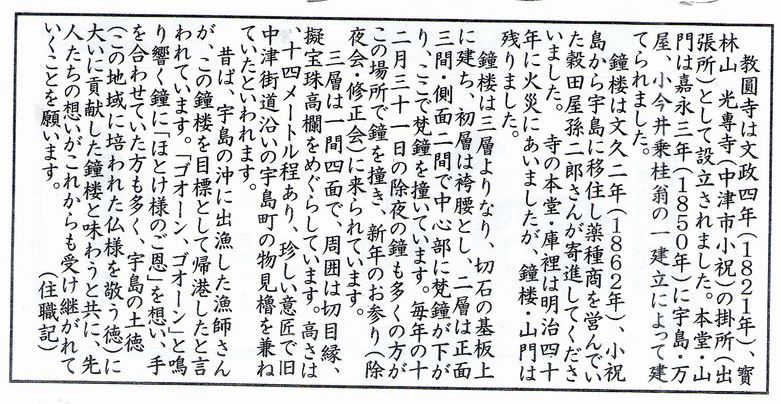 教圓寺は文政四年(1821年)、寶
林山 光専寺(中津市小祝)の掛所(出
張所)として設立されました。本堂・山
門は嘉永三年(1850年)に宇島・万
屋、小今井乗桂翁の一建立によって建
てられました。
鐘楼は文久二年(1862年)、小祝
島から宇島に移住し薬種商を営んでい
た穀田屋孫二郎さんが寄進してくださ
いました。 寺の本堂・庫裡は明治四十
年に火災にあいましたが 鐘楼・山門は
残りました。
鐘楼は三層よりなり、切石の基板上
に建ち、初層は袴腰とし、二層は正面
三間・側面二間で中心部に梵鐘が下が
り、ここで梵鐘を撞いています。毎年の十
二月三十一日の除夜の鐘も多くの方が
この場所で鐘を撞き、新年のお参り(除
夜会・修正会)に来られています。
三層は一間四面で、周囲は切目縁、
擬宝珠高欄をめぐらしています。高さは
、十四メートル程あり、珍しい意匠で旧
中津街道沿いの宇島町の物見櫓を兼ね
ていたといわれます。
昔ば、宇島の沖に出漁した漁師さん
が、この鐘楼を目標として帰港したと言
われています。「ゴオーン、ゴオーン」と鳴
り響く鐘に「ほとけ様のご恩」を想い、手
を合わせていた方も多く、宇島の土徳
(この地域に培われた仏様を敬う徳)に
大いに貢献した鐘楼と味わうと共に、先
人たちの想いがこれからも受け継がれて
いくことを願います。
(住職記)